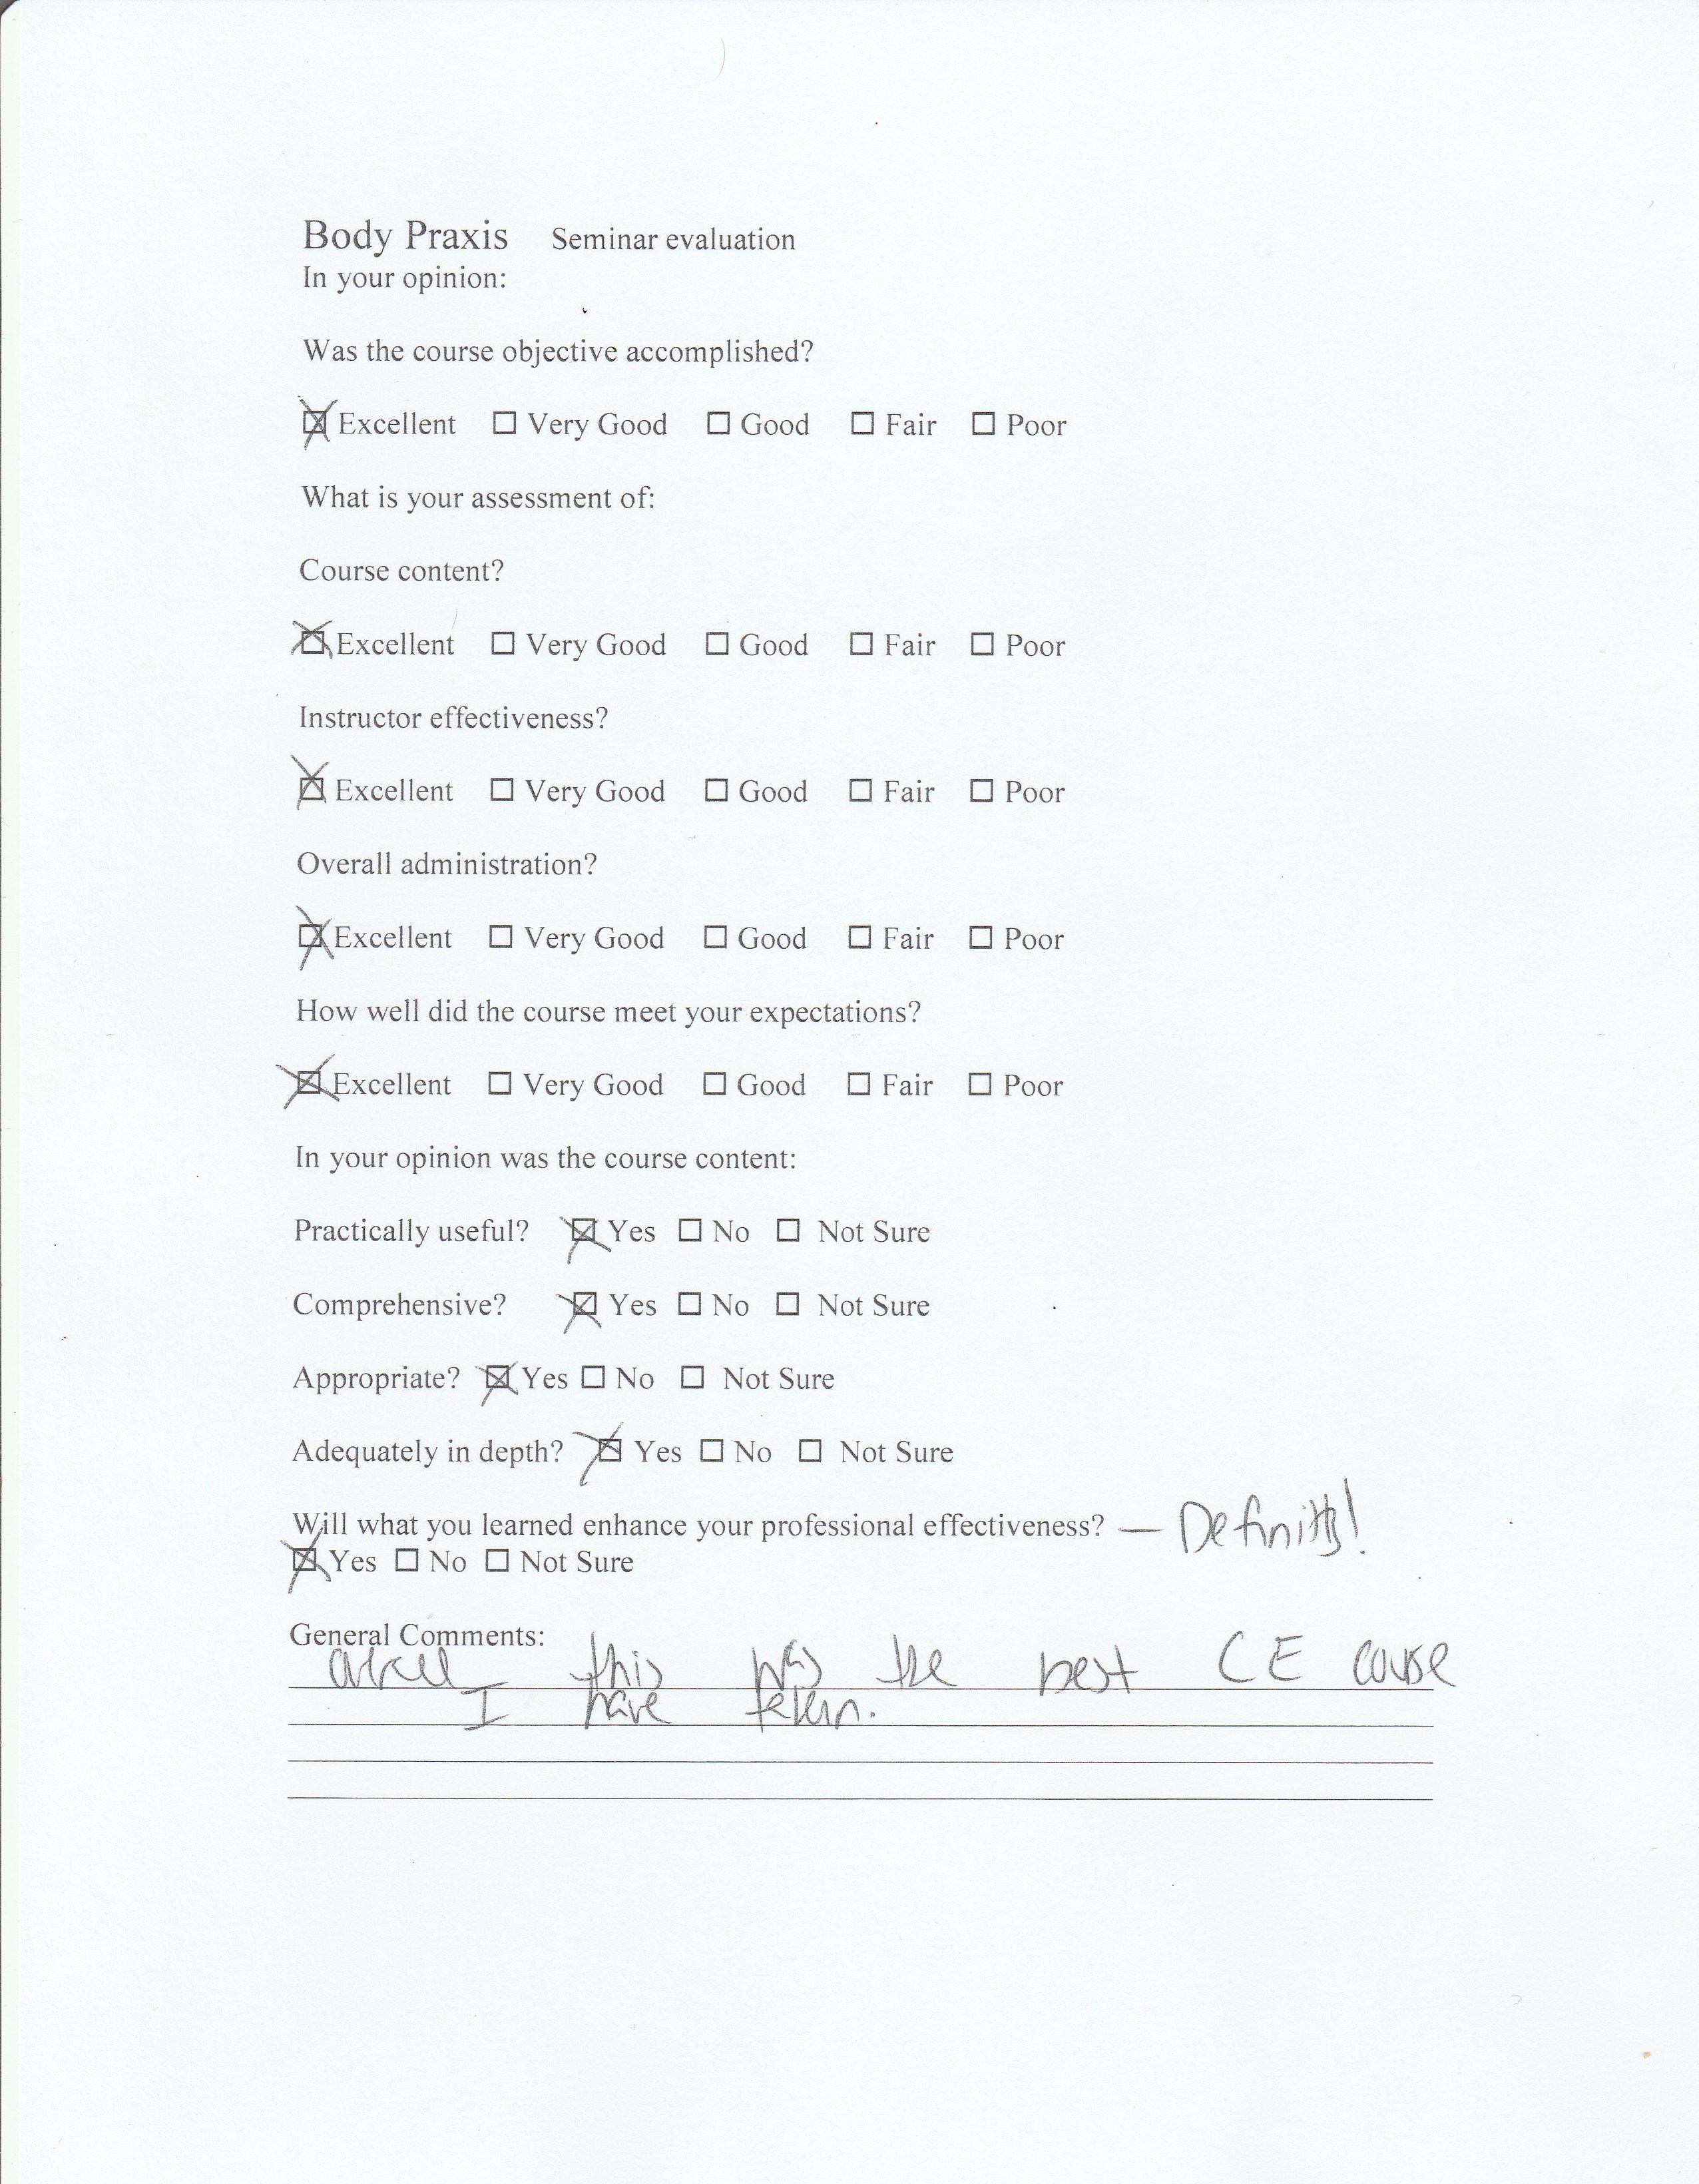 Body Praxis Seminar evaluation
In your opinion:
Was the course objective accomplished?
☒ Excellent ☐ Very Good ☐ Good ☐ Fair ☐ Poor
What is your assessment of:
Course content?
☒ Excellent ☐ Very Good ☐ Good ☐ Fair ☐ Poor
Instructor effectiveness?
☒ Excellent ☐ Very Good ☐ Good ☐ Fair ☐ Poor
Overall administration?
☒ Excellent ☐ Very Good ☐ Good ☐ Fair ☐ Poor
How well did the course meet your expectations?
☒ Excellent ☐ Very Good ☐ Good ☐ Fair ☐ Poor
In your opinion was the course content:
Practically useful? ☒ Yes ☐ No ☐ Not Sure
Comprehensive? ☒ Yes ☐ No ☐ Not Sure
Appropriate? ☒ Yes ☐ No ☐ Not Sure
Adequately in depth? ☒ Yes ☐ No ☐ Not Sure
Will what you learned enhance your professional effectiveness? —
☒ Yes ☐ No ☐ Not Sure
General Comments:
this was the best CE course
I have taken.